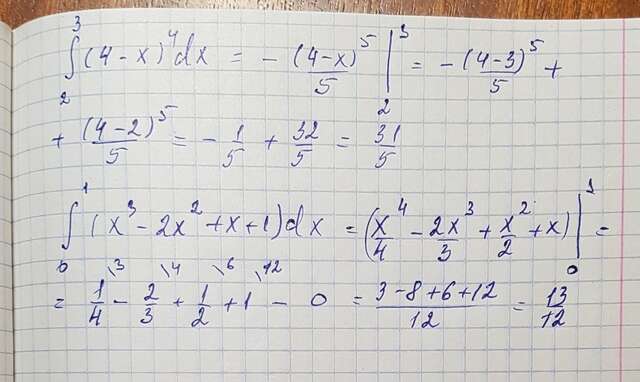 ∫₂³ (4-x)⁴dx = - (4-x)⁵/5 |₂³ = - (4-3)⁵/5 +
+ (4-2)⁵/5 = - 1/5 + 32/5 = 31/5
∫₀¹ (x³ - 2x² + x + 1)dx = (x⁴/4 - 2x³/3 + x²/2 + x) |₀¹ =
= 1/4 \3 - 2/3 \4 + 1/2 \6 + 1 \12 - 0 = (3-8+6+12)/12 = 13/12